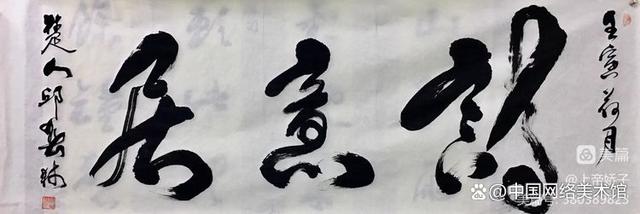 壬寅荷月
意居
楚人邱
美篇
@上帝娇子
@中国网络美术馆